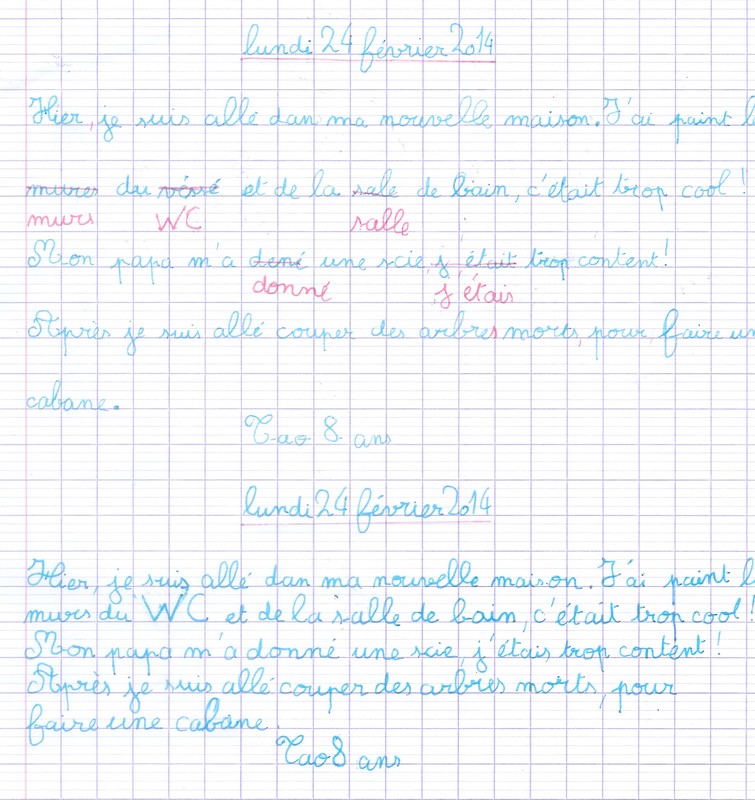 lundi 24 février 2014
Hier, je suis allé dan ma nouvelle maison. J'ai paint l
mures du véssé et de la sale de bain, c'était trop cool !
murs WC salle
Mon papa m'a dené une scie, j'était trop content!
donné j'étais
Après je suis allé couper des arbres morts, pour faire un
cabane.
Tao 8 ans
lundi 24 février 2014
Hier, je suis allé dan ma nouvelle maison. J'ai paint l
murs du WC et de la salle de bain, c'était trop cool !
Mon papa m'a donné une scie, j'étais trop content !
Après je suis allé couper des arbres morts, pour
faire une cabane.
Tao 8 ans